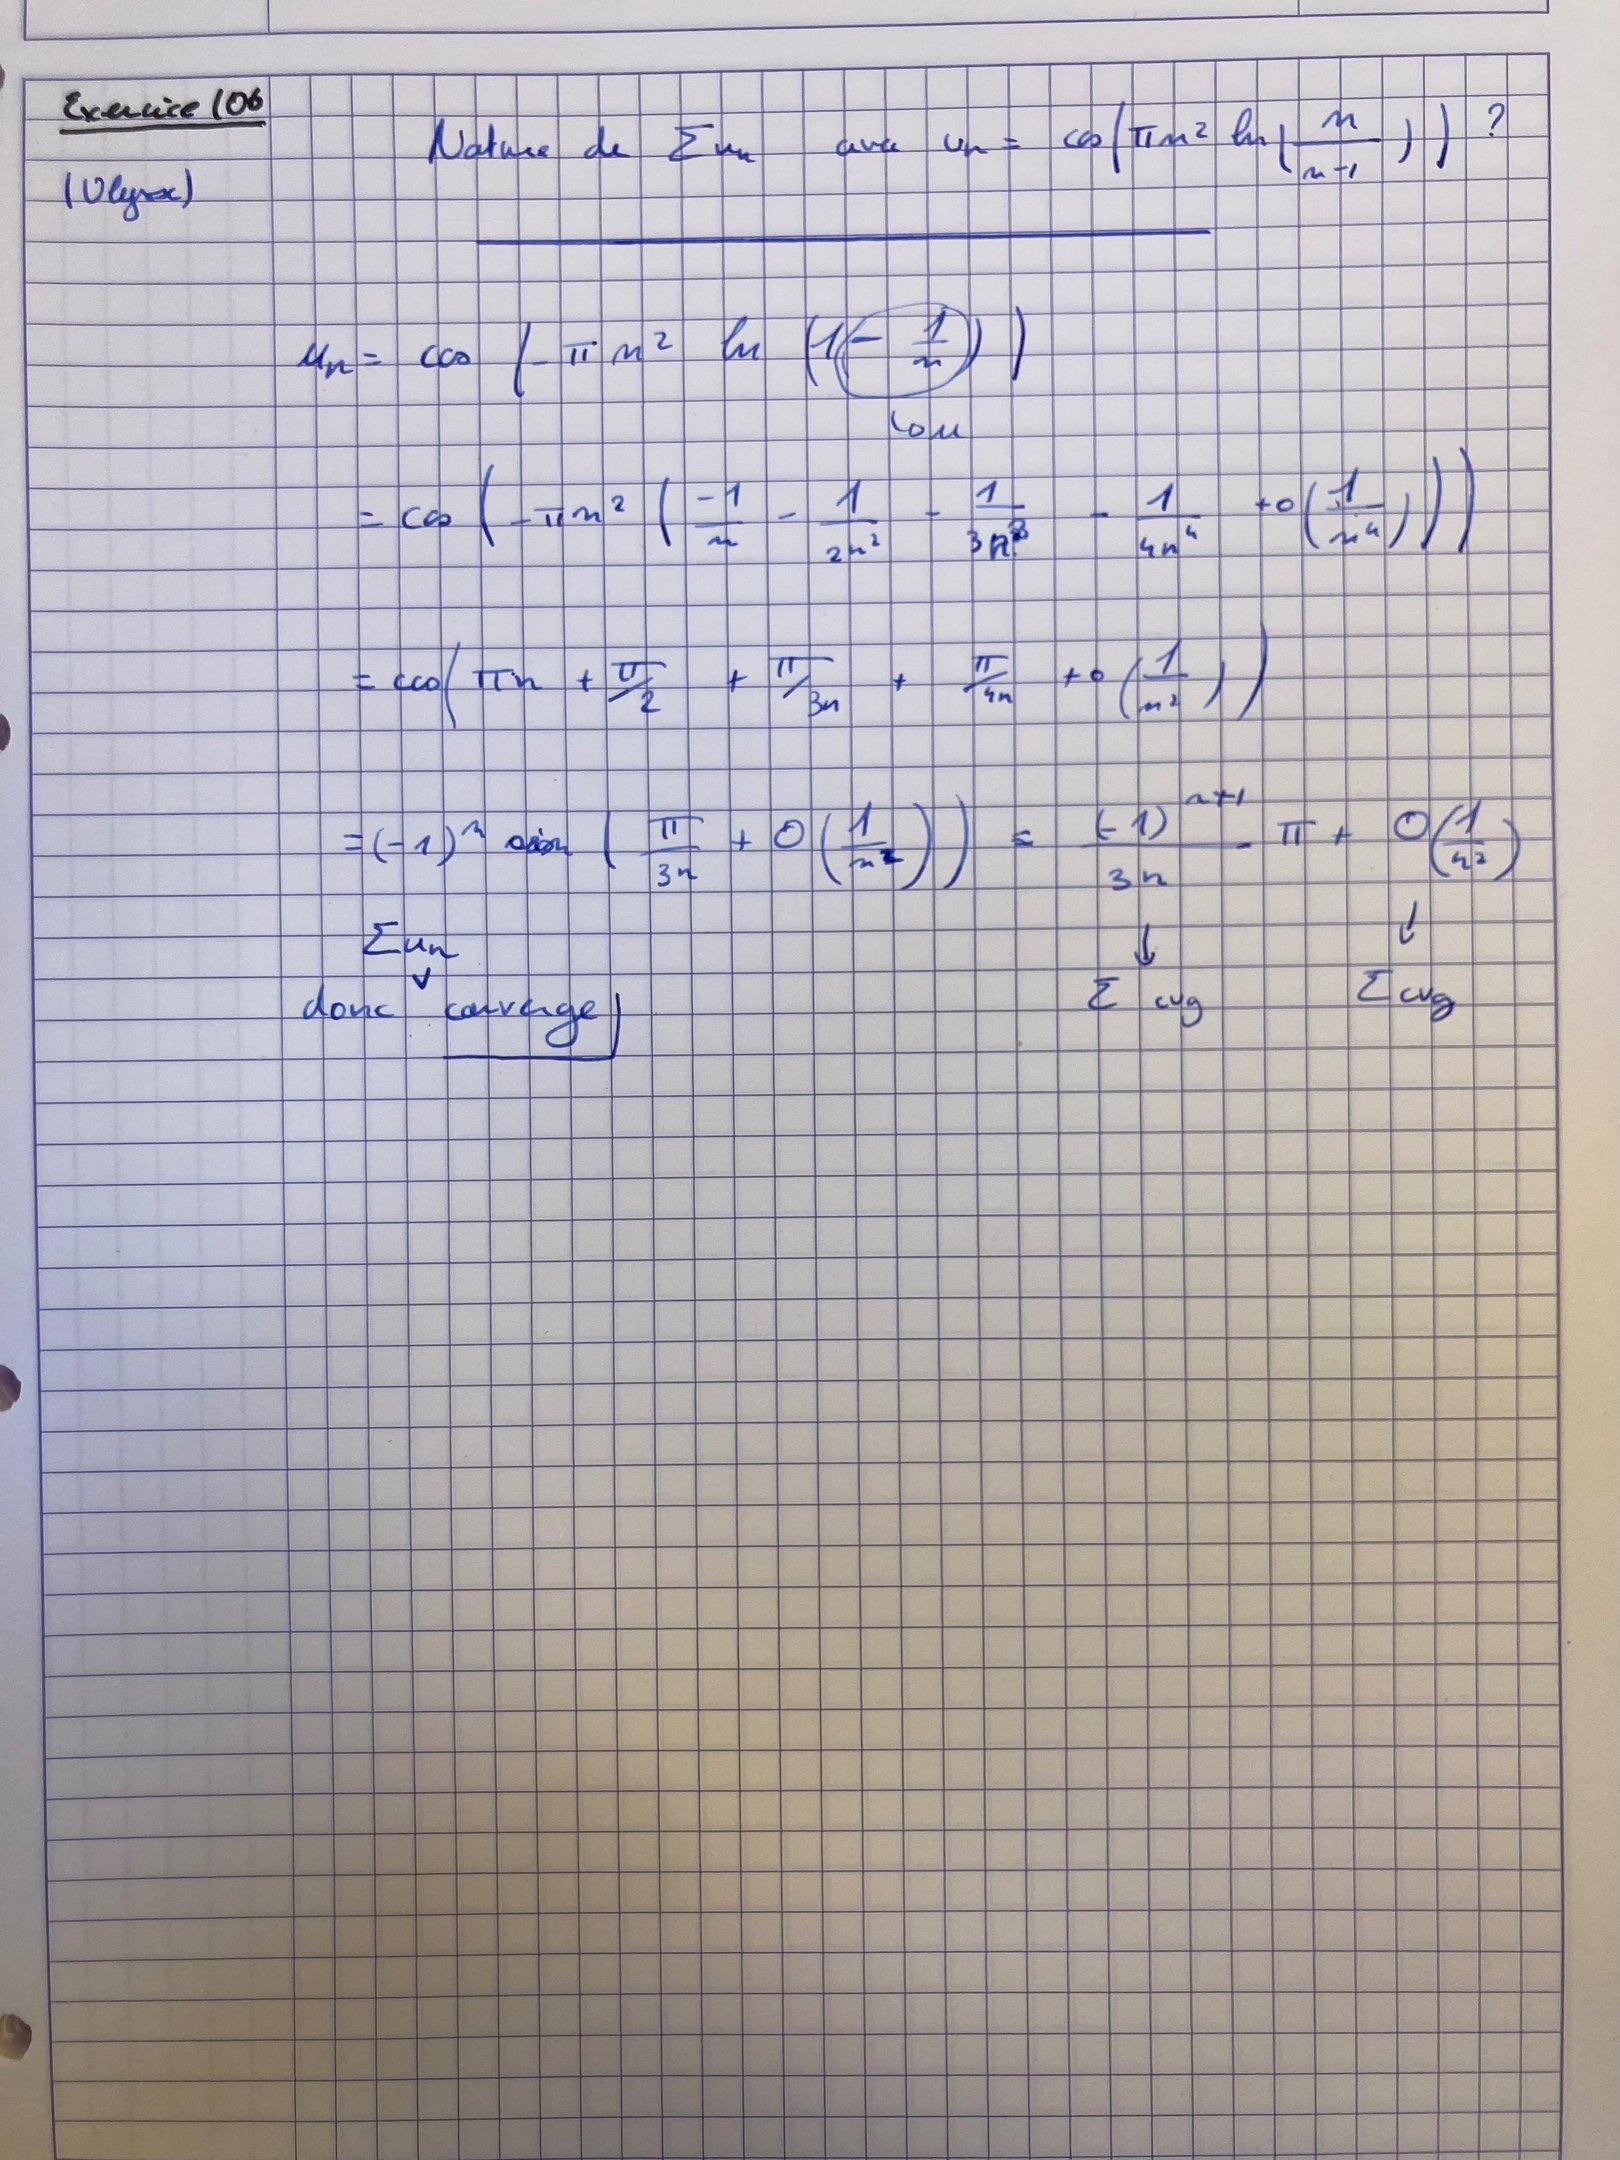 Exercice 106
Nature de Σun avec un = cos(πn² ln(n/(n-1))) ?
un = cos(-πn² ln(1 - 1/n))
= cos(-πn²(-1/n - 1/2n² - 1/3n³ - 1/4n⁴ + o(1/n⁴)))
= cos(πn + π/2 + π/3n + π/4n + o(1/n²))
= (-1)ⁿ sin(π/3n + O(1/n²)) = (-1)ⁿ⁺¹/3n π + O(1/n²)
Σun ↓ ↓
donc converge Σ cvg Σ cvg